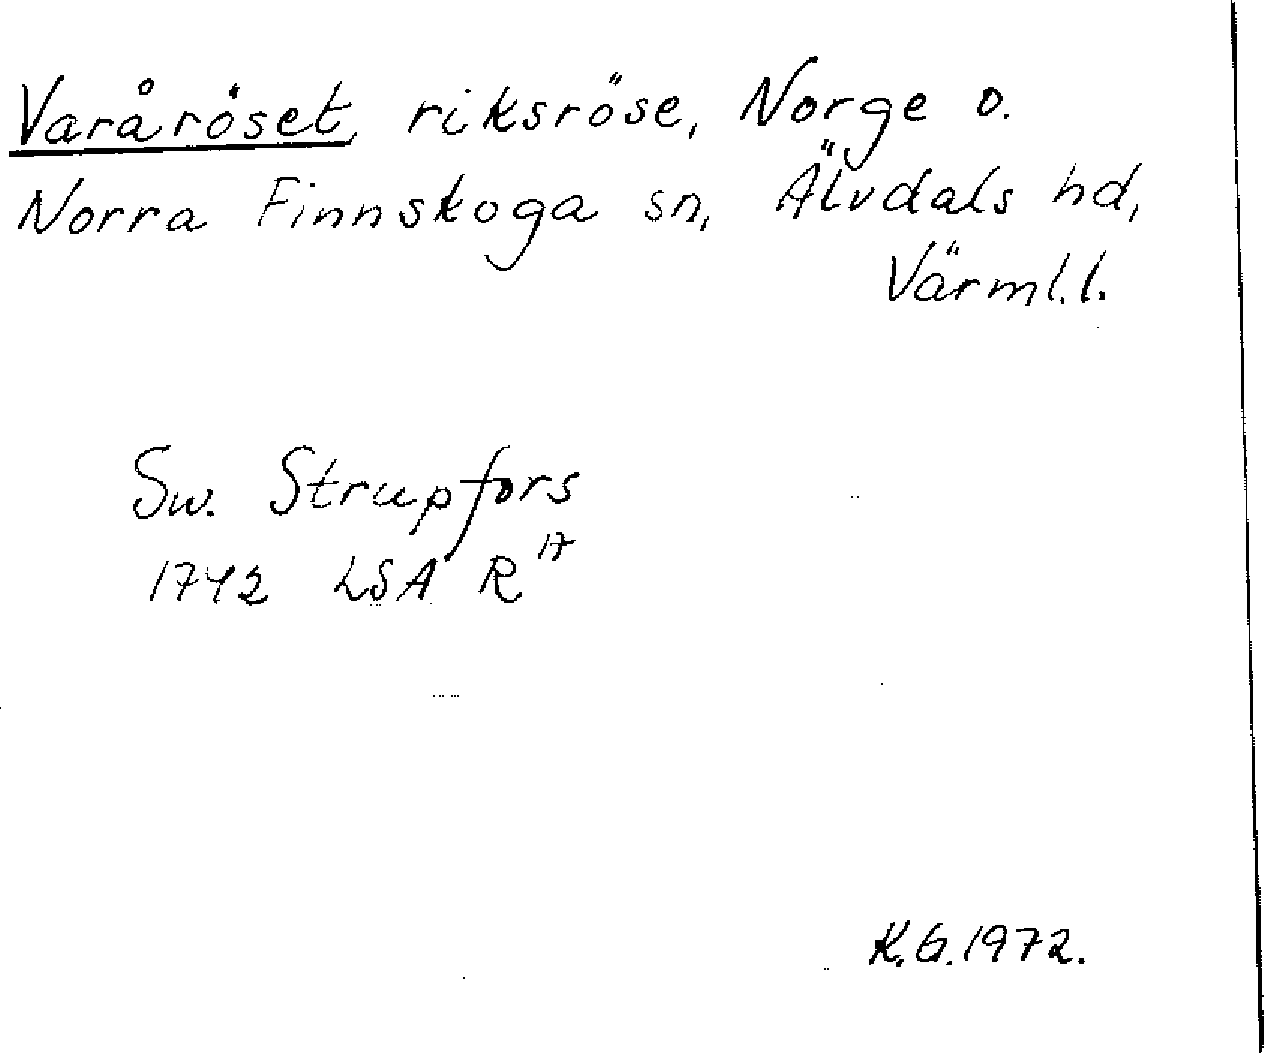 Varåröset, riksröse, Norge o.
Norra Finnskoga sn, Älvdals hd,
Värml. l.
Sw. Strupfors
1742 LSA R¹⁷
K.G. 1972.